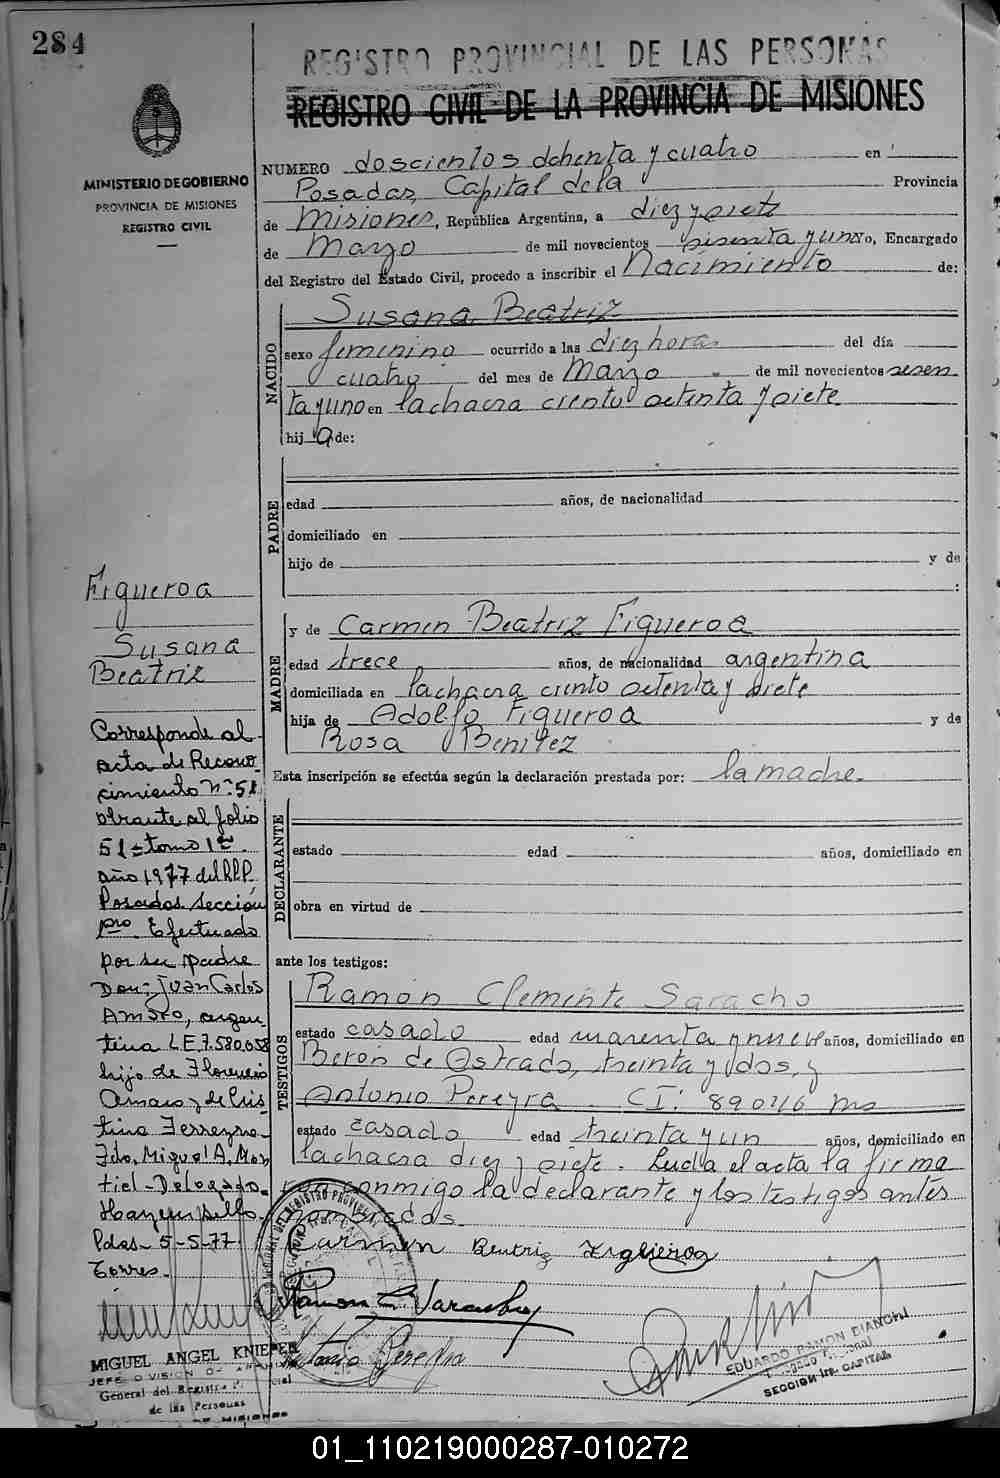 284
REGISTRO PROVINCIAL DE LAS PERSONAS
REGISTRO CIVIL DE LA PROVINCIA DE MISIONES
MINISTERIO DE GOBIERNO
PROVINCIA DE MISIONES
REGISTRO CIVIL
NUMERO doscientos ochenta y cuatro en
Posadas, Capital de la Provincia
de Misiones, República Argentina, a diez y siete
de Marzo de mil novecientos sesenta y uno Yo, Encargado
del Registro del Estado Civil, procedo a inscribir el Nacimiento de:
NACIDO
Susana Beatriz
sexo femenino ocurrido a las diez horas del día
cuatro del mes de Marzo de mil novecientos sesen
ta y uno en la chacra ciento setenta y siete
hij a de:
PADRE
edad años, de nacionalidad
domiciliado en
hijo de y de
:
Figueroa
Susana
Beatriz
MADRE
y de Carmen Beatriz Figueroa
edad trece años, de nacionalidad argentina
domiciliada en la chacra ciento setenta y siete
hija de Adolfo Figueroa y de
Rosa Benitez
Esta inscripción se efectúa según la declaración prestada por: la madre.
DECLARANTE
estado edad años, domiciliado en
obra en virtud de
ante los testigos:
TESTIGOS
Ramón Clemente Saracho
estado casado edad cuarenta y nueve años, domiciliado en
Berón de Astrada, treinta y dos, y
Antonio Pereyra CI: 89046 Ms
estado casado edad treinta y un años, domiciliado en
la chacra diez y siete. Leida el acta la firma
conmigo la declarante y los testigos antes
nombrados.
Carmen Beatriz Figueroa
Antonio Pereyra
Corresponde al
acta de Recono
cimiento nº 51
obrante al folio
51 tomo 1º
año 1977 del R.P.P.
Posadas Sección
1ra. Efectuado
por su padre
Don: Juan Carlos
Amaro, argen
tino L E 7.580.058
hijo de Florencio
Amaro y de Cris
tina Ferreyra.
Fdo, Miguel A. Mon
tiel - Delegado.
Hay un sello.
Pdas - 5-5-77
Torres.
MIGUEL ANGEL KNIEPER
JEFE DIVISION
General del Registro Provincial
de las Personas
DE MISIONES
EDUARDO RAMON BIANCHI
SECCION 1ra. CAPITAL
01_110219000287-010272